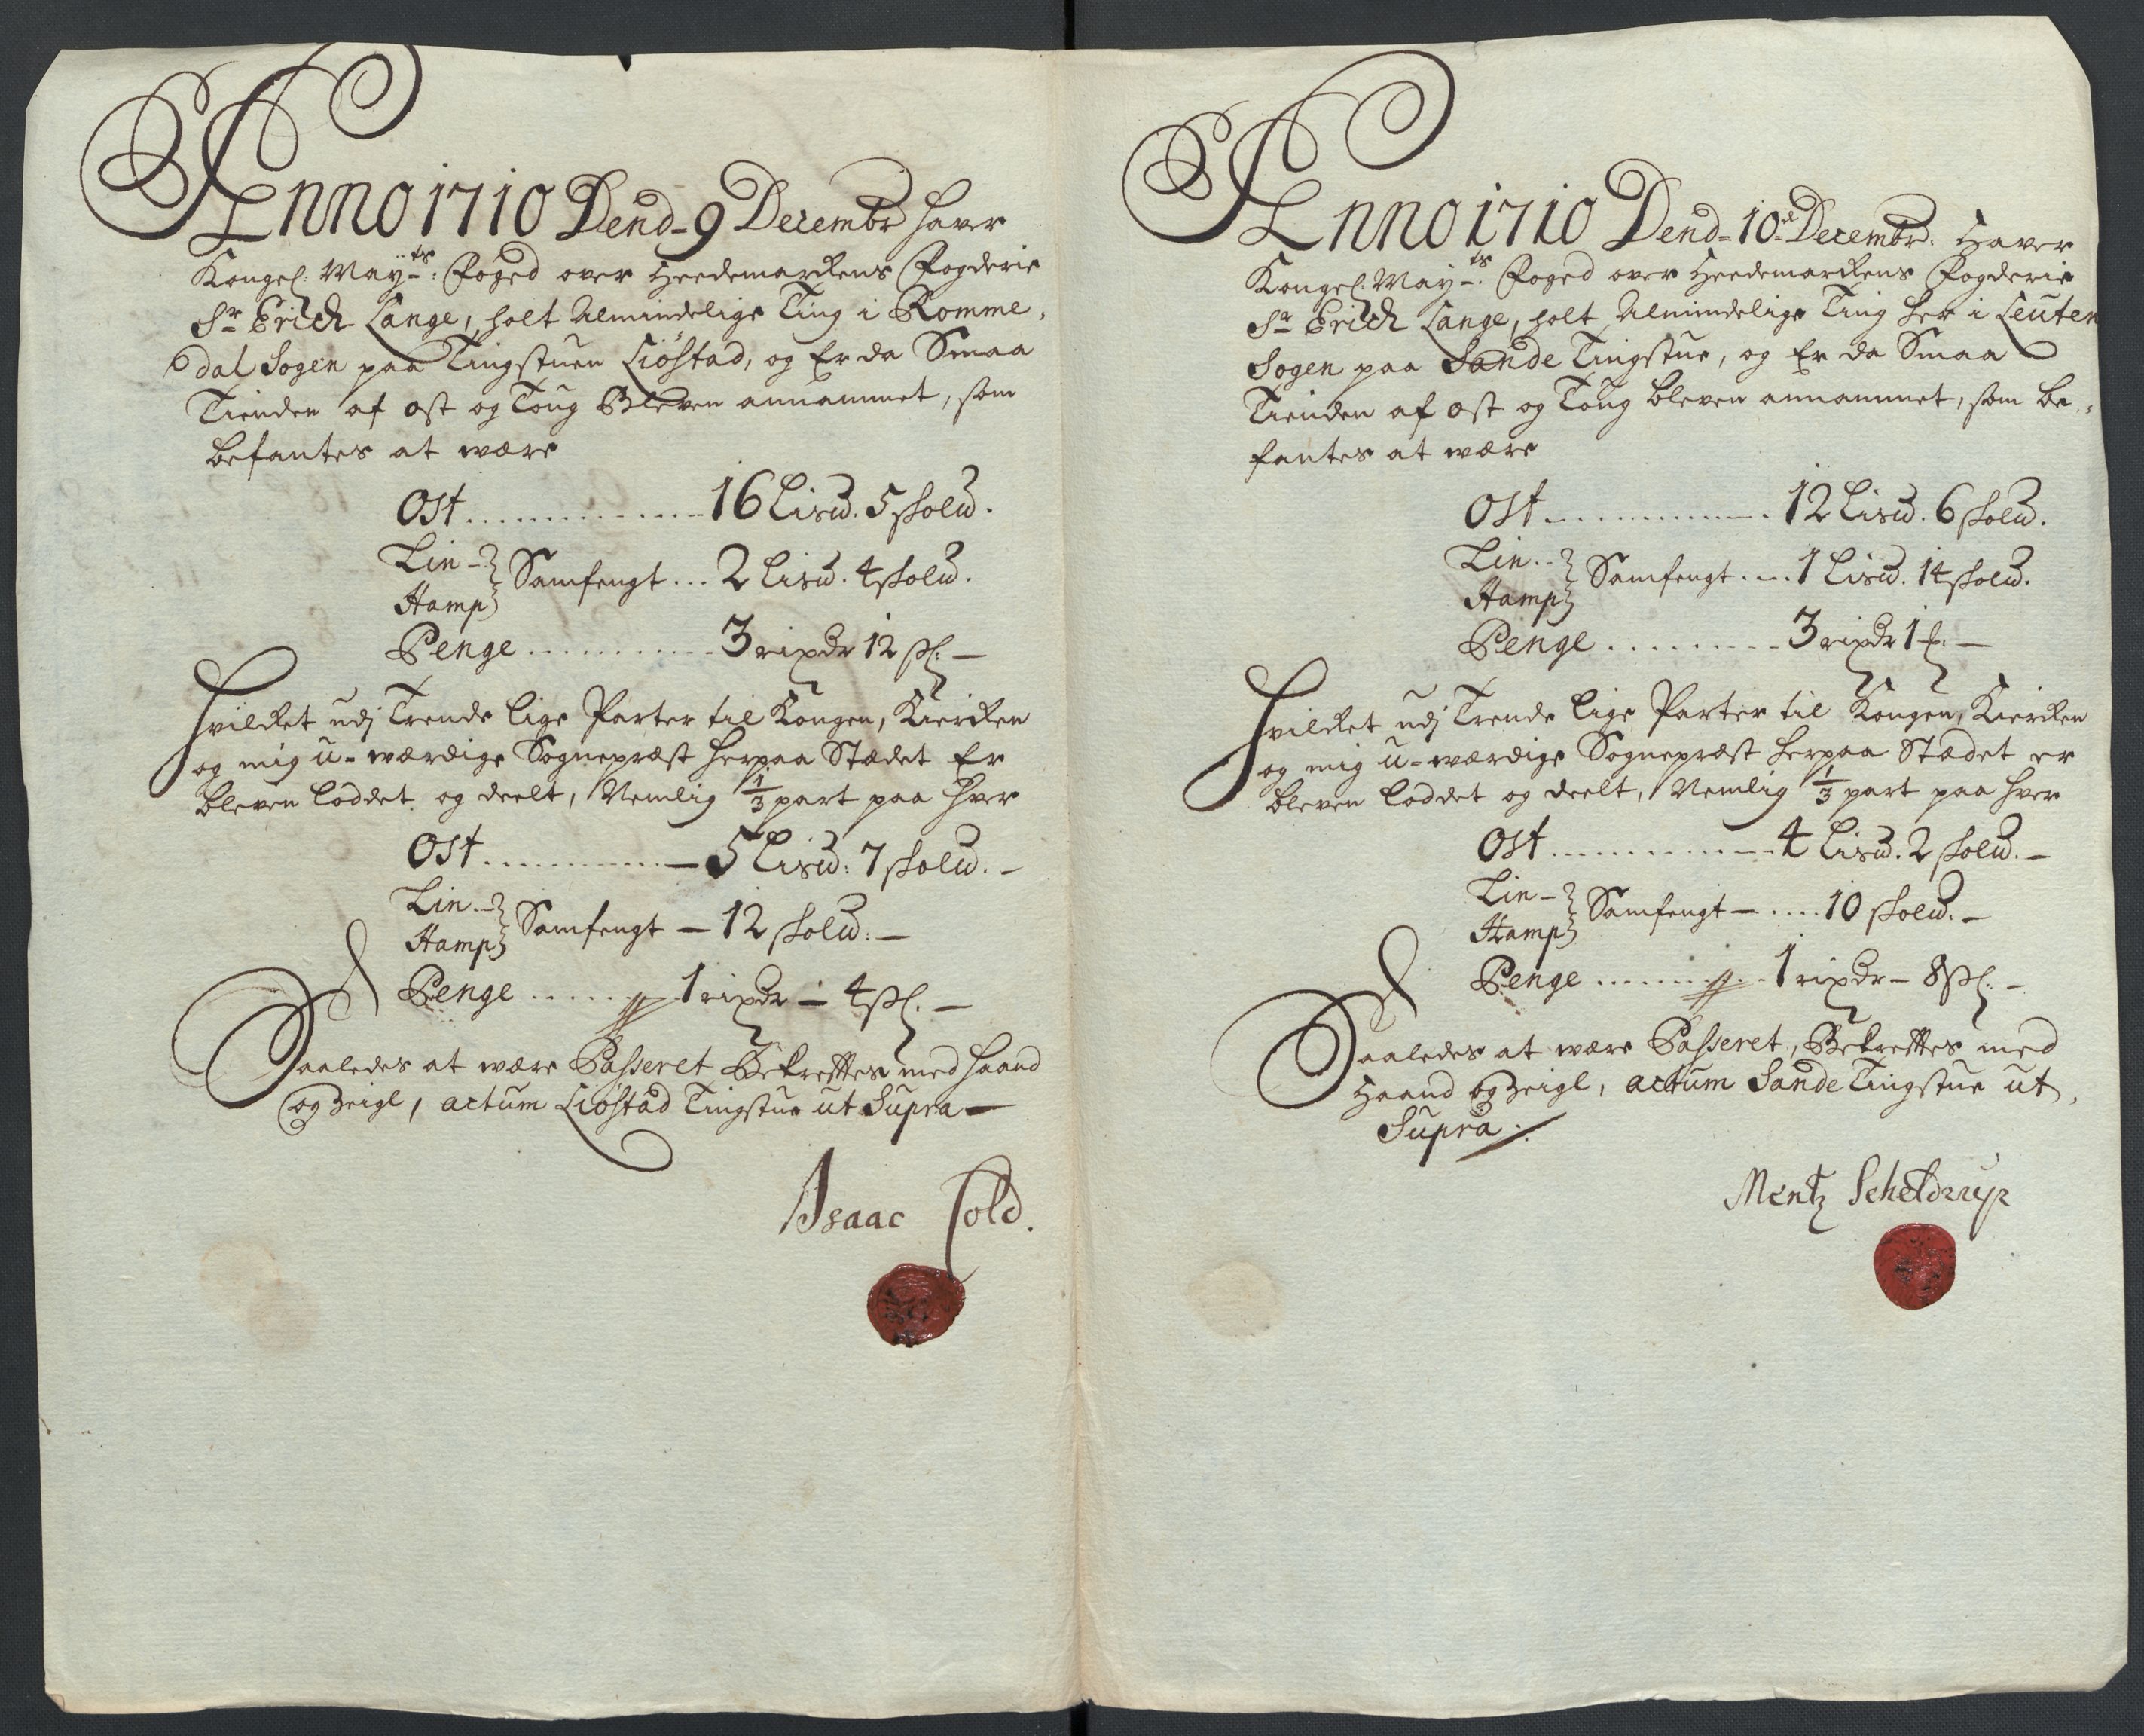 Anno 1710 Dend. 9 Decembr haver
Kongel: May:ts: Foged over Heedemarckens Fogderie
Sr Erich Lange, holt Almindelige Ting i Romme,
dal Sogen paa Tingstuen Liøstad, og Er da Smaa
Tienden af Ost og Toug Bleven annammet, som
befantes at være
Ost............16 Lisd. 5 skold.
Lin -
Hamp } Samfengt... 2 Lisd. 4 skold.
Penge .......... 3 rixdr 12 sk: —
Hvilcket udj Trende lige Parter til Kongen, Kiercken
og mig u-værdige Sognepræst herpaa Stædet Er
bleven loddet og deelt, Nemlig 1/3 part paa hver
Ost........... — 5 Lisd: 7 skold. —
Lin. -
Hamp } Samfengt — 12 skold: —
Penge ....... 1 rixdr — 4 sk. —
Saaledes at være Passeret Bekreftes med haand
og Zeigl, actum Liøstad Tingstue ut Supra —
Isaac Cold.
Anno 1710 Dend. 10de Decembr. Haver
Kongel: May:ts: Foged over Heedemarckens Fogderie
Sr Erich Lange, holt Almindelige Ting her i Leuten
Sogen paa Sande Tingstue, og Er da Smaa
Tienden af Ost og Toug bleven annammet, som be,
fantes at være
Ost............12 Lisd. 6 skold.
Lin. -
Hamp } Samfengt.... 1 Lisd. 14 skold.
Penge ......... 3 rixdr 1 —
Hvilcket udj Trende lige Parter til Kongen, Kiercken
og mig u-værdige Sognepræst herpaa Stædet er
bleven loddet og deelt, Nemlig 1/3 part paa hver
Ost............. 4 Lisd. 2 skold. —
Lin -
Hamp } Samfengt — .... 10 skold. —
Penge ......... 1 rixdr — 8 sk: —
Saaledes at være Passeret, Bekreftes med
Haand og Zeigl, actum Sande Tingstue ut,
Supra.
Mentz Scheldrup